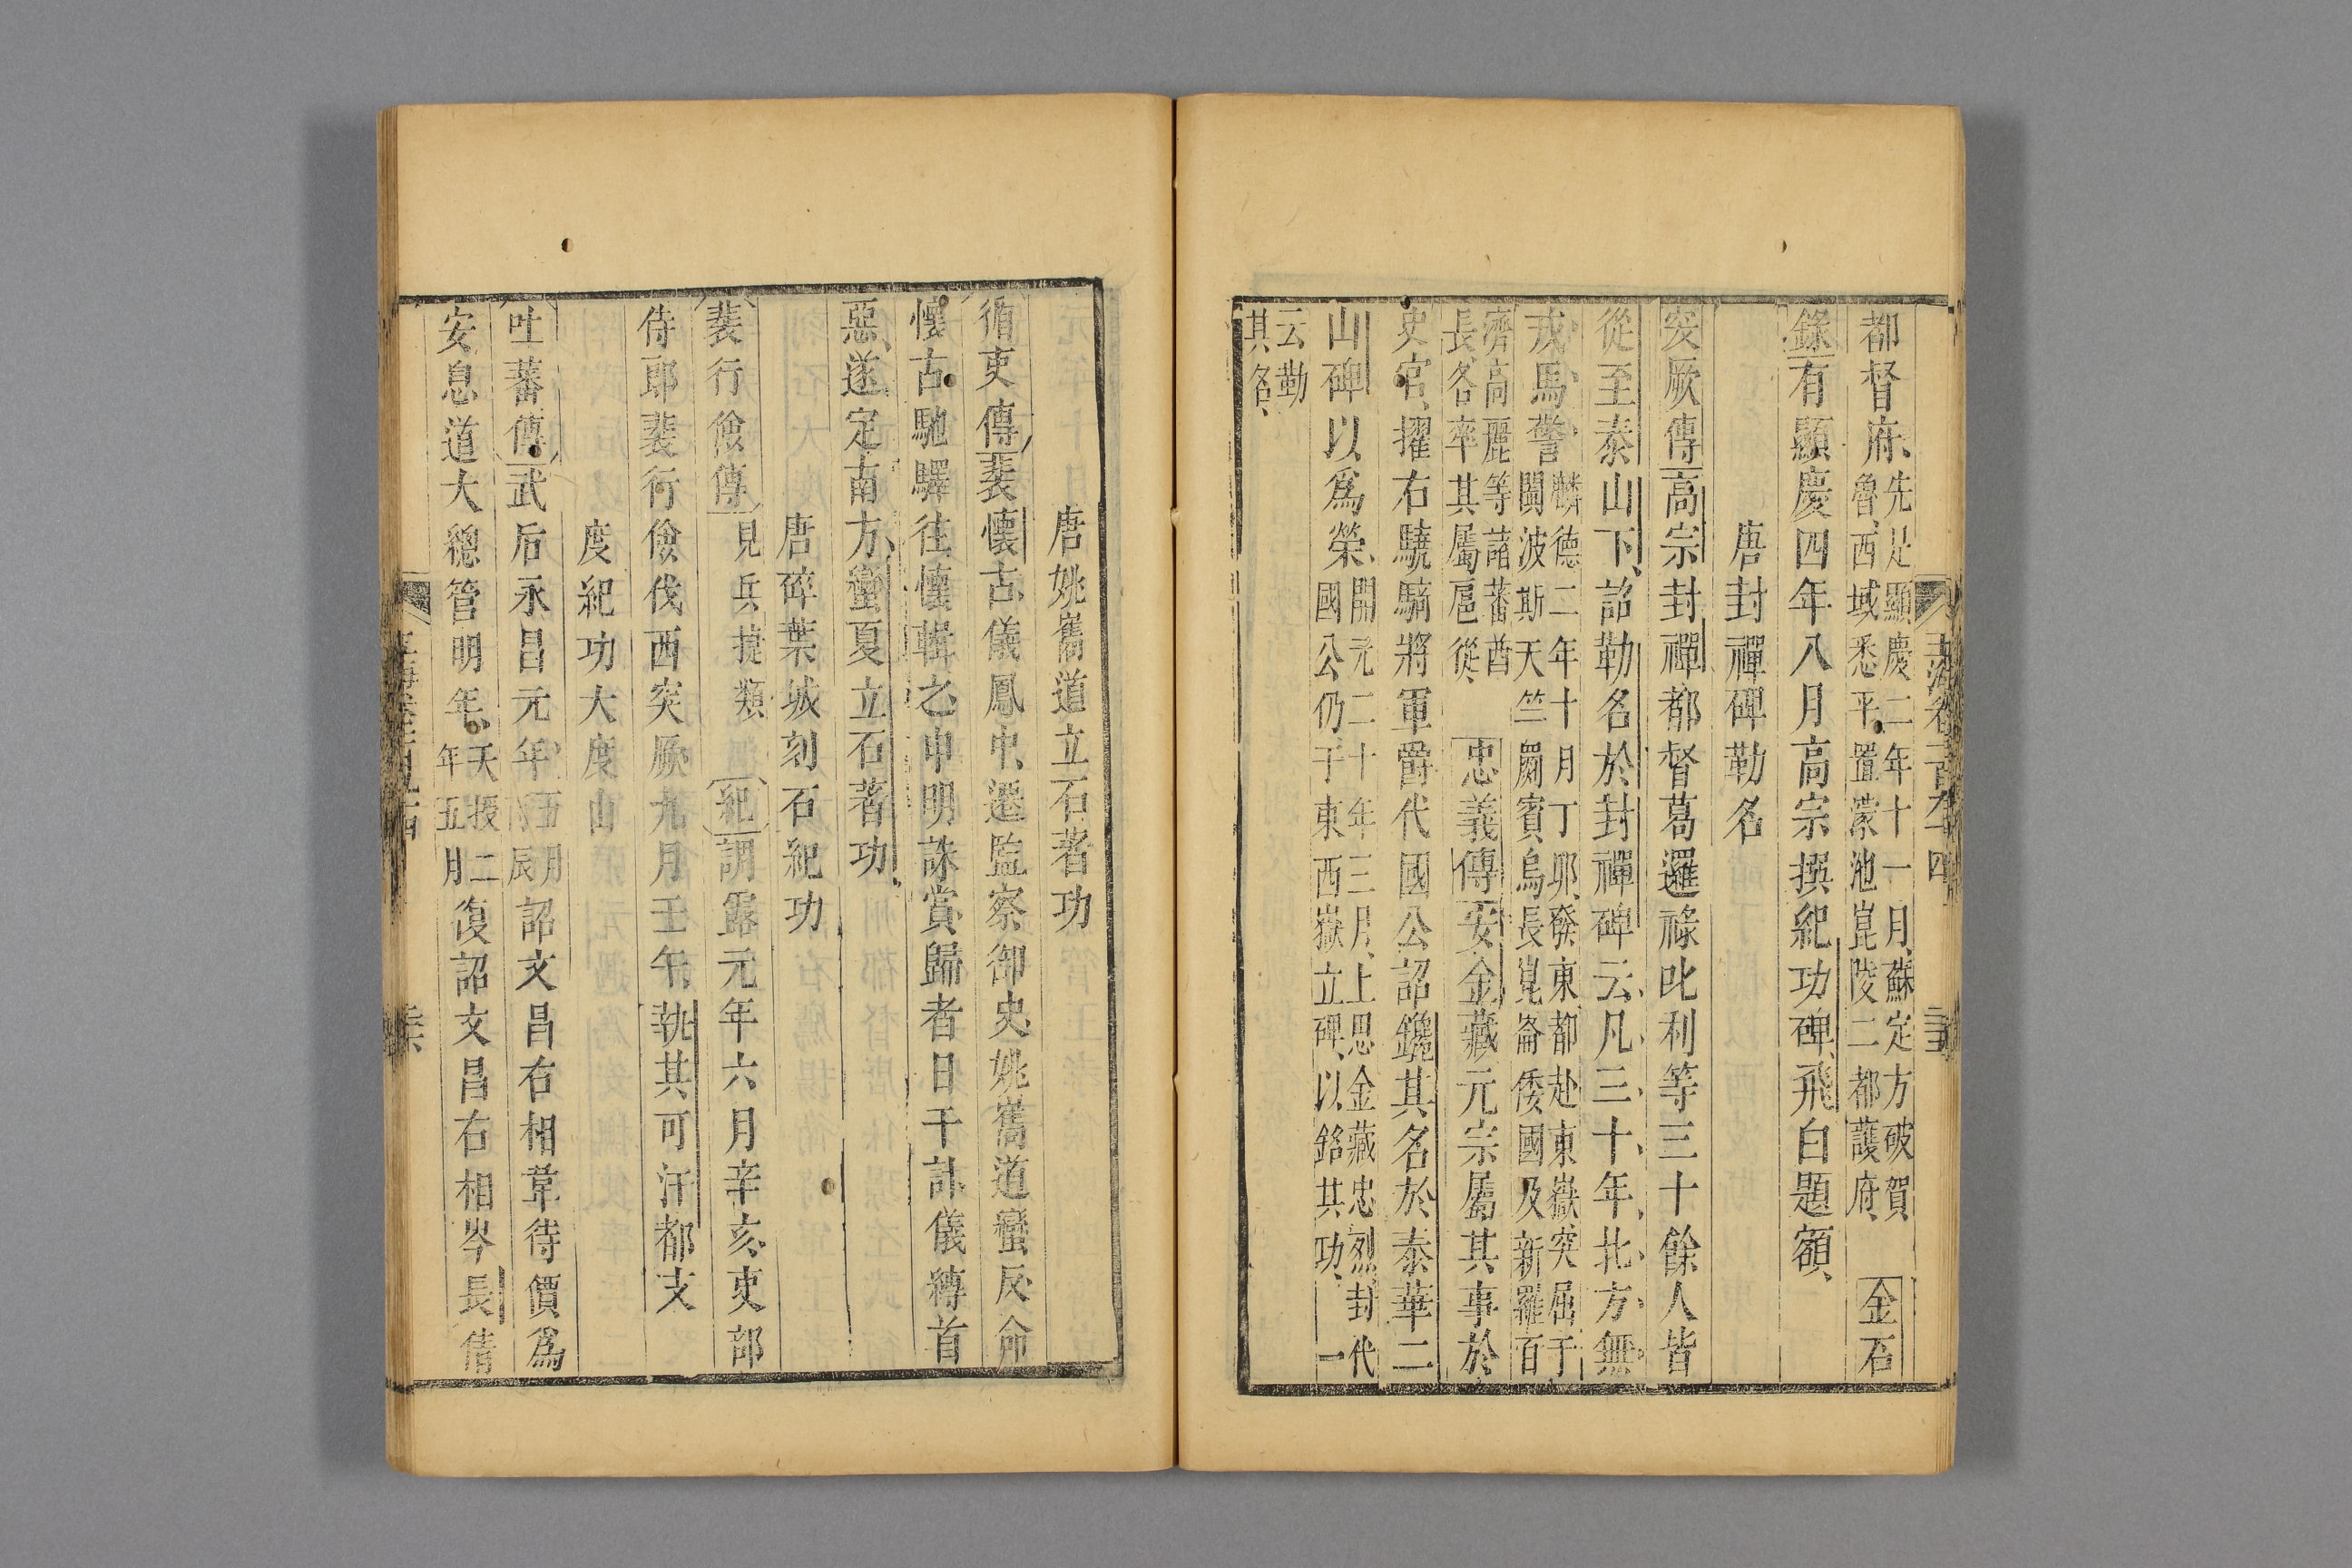 都督府先是顯慶二年十一月蘇定方破賀
魯西域悉平置蒙池崑陵二都護府金石
錄有顯慶四年八月高宗撰紀功碑飛白題額
唐封禪碑勒名
突厥傳高宗封禪都督葛邏祿叱利等三十餘人皆
從至泰山下詔勒名於封禪碑云凡三十年北方無
戎馬警麟德二年十月丁卯發東都赴東嶽突屈于
闐波斯天竺罽賓烏長崑崙倭國及新羅百
濟高麗等諸蕃酋
長各率其屬扈從忠義傳安金藏元宗屬其事於
史官擢右驍騎將軍爵代國公詔鑱其名於泰華二
山碑以爲榮開元二十年三月上思金藏忠烈封代
國公仍于東西嶽立碑以銘其功一
云勒
其名
唐姚嶲道立石著功
循吏傳裴懷古儀鳳中遷監察御史姚嶲道蠻反命
懷古馳驛往懷輯之申明誅賞歸者日千計儀縛首
惡遂定南方蠻夏立石著功
唐碎葉城刻石紀功
裴行儉傳見兵捷類紀調露元年六月辛亥吏部
侍郎裴行儉伐西突厥九月壬午執其可汗都支
度紀功大度山
吐蕃傳武后永昌元年五月
辰詔文昌右相韋待價爲
安息道大總管明年天授二
年五月復詔文昌右相岑長倩